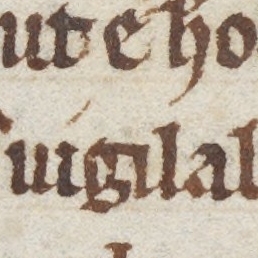 ut e ho
uigilal